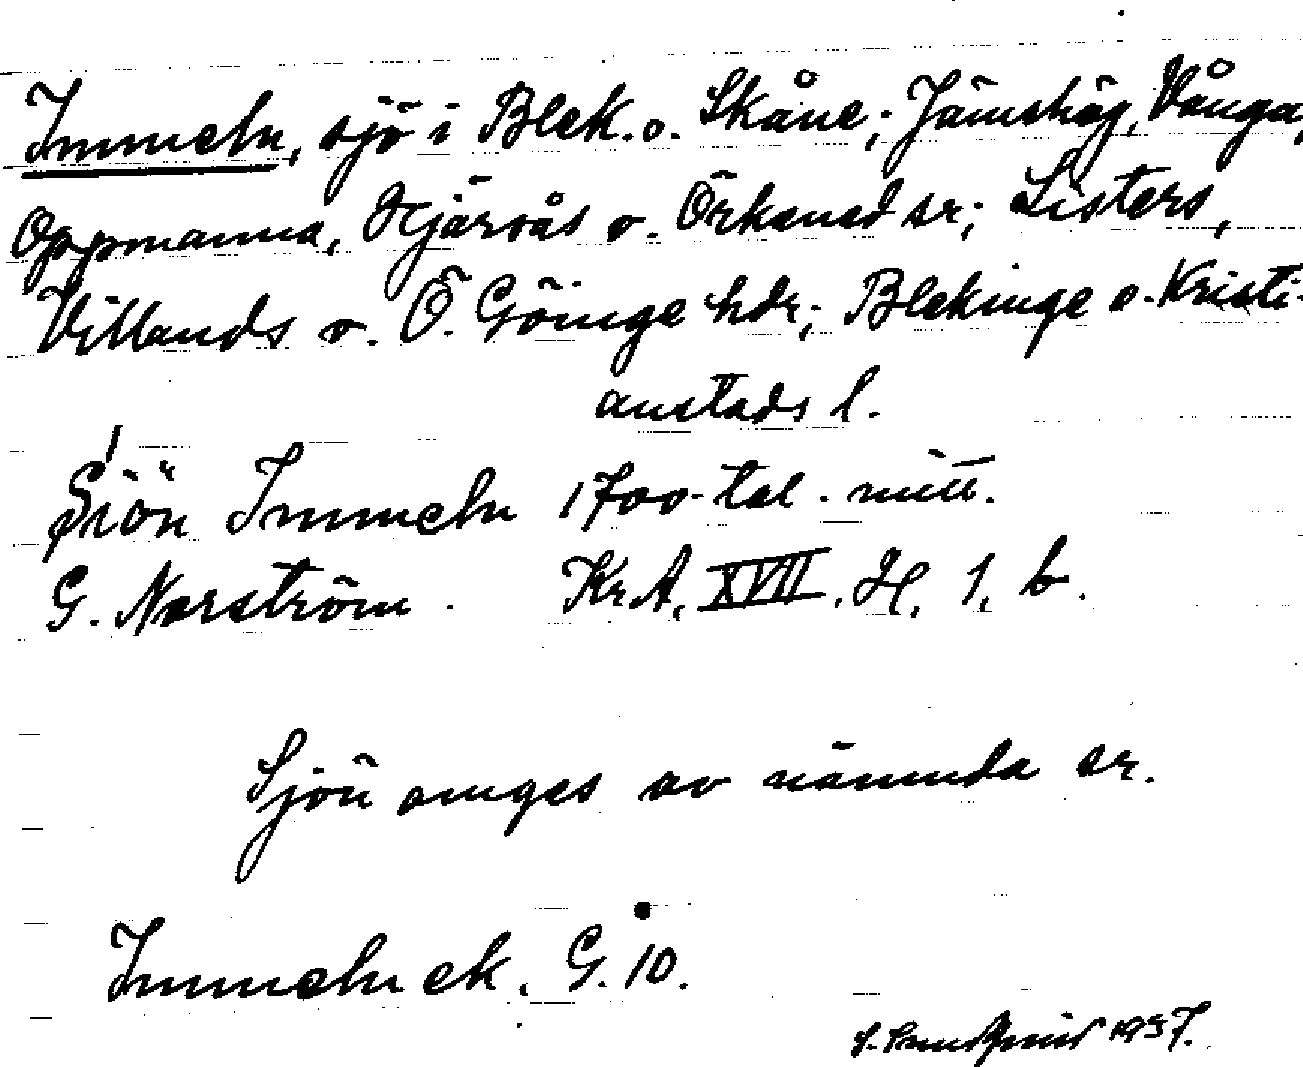 Immeln, sjö i Blek. o. Skåne; Jämshög, Vånga,
Oppmanna, Hjärsås o. Örkened sr; Listers,
Villands o. Ö. Göinge hdr; Blekinge o. Kristi-
anstads l.
Siön Immeln 1700-tal. mitt.
G. Norström. KrA, XVII, H, 1, b.
Sjön omges av nämnda sr.
Immeln ek. G. 10.
1937.